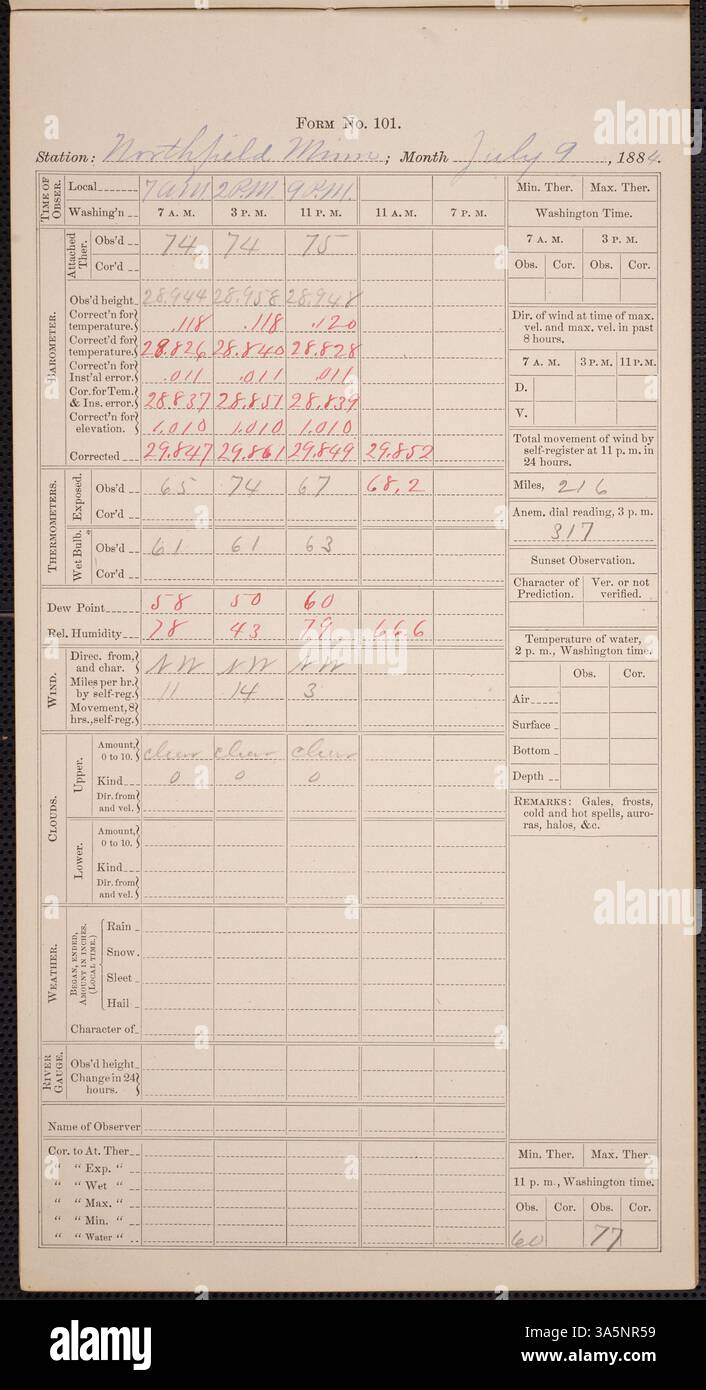 FORM No. 101.
Station: Northfield Minn; Month July 9, 1884.
TIME OF OBSER. Local 7 A.M. 2 P.M. 9 P.M.
Washing'n 7 A. M. 3 P. M. 11 P. M. 11 A. M. 7 P. M.
BAROMETER.
Attached Ther. Obs'd 74 74 75
Cor'd
Obs'd height 28.944 28.958 28.948
Correct'n for temperature. .118 .118 .120
Correct'd for temperature. 28.826 28.840 28.828
Correct'n for Inst'al error. .011 .011 .011
Cor. for Tem. & Ins. error. 28.837 28.851 28.839
Correct'n for elevation. 1.010 1.010 1.010
Corrected 29.847 29.861 29.849 29.852
THERMOMETERS.
Exposed. Obs'd 65 74 67 68.2
Cor'd
Wet Bulb. Obs'd 61 61 63
Cor'd
Dew Point 58 50 60
Rel. Humidity 78 43 79 66.6
WIND.
Direc. from, and char. NW NW NW
Miles per hr. by self-reg. 11 14 3
Movement, 8 hrs., self-reg.
CLOUDS.
Upper. Amount, 0 to 10. clear clear clear
Kind 0 0 0
Dir. from and vel.
Lower. Amount, 0 to 10.
Kind
Dir. from and vel.
WEATHER.
BEGAN, ENDED, AMOUNT IN INCHES. (LOCAL TIME.)
Rain
Snow
Sleet
Hail
Character of
RIVER GAUGE. Obs'd height
Change in 24 hours.
Name of Observer
Cor. to At. Ther
" " Exp. "
" " Wet "
" " Max. "
" " Min. "
" " Water "
Min. Ther. Max. Ther.
Washington Time.
7 A. M. 3 P. M.
Obs. Cor. Obs. Cor.
Dir. of wind at time of max.
vel. and max. vel. in past
8 hours.
7 A. M. 3 P. M. 11 P. M.
D.
V.
Total movement of wind by
self-register at 11 p. m. in
24 hours.
Miles, 216
Anem. dial reading, 3 p. m.
317
Sunset Observation.
Character of Prediction. Ver. or not verified.
Temperature of water,
2 p. m., Washington time.
Obs. Cor.
Air
Surface
Bottom
Depth
REMARKS: Gales, frosts,
cold and hot spells, auro-
ras, halos, &c.
Min. Ther. Max. Ther.
11 p. m., Washington time.
Obs. Cor. Obs. Cor.
60 77
alamy
alamy
alamy
a
a
a
alamy
Image ID: 3A5NR59
www.alamy.com